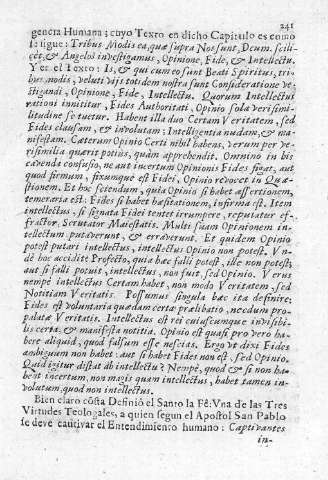 241
gencia Humana; cuyo Texto en dicho Capitulo es como
se sigue: Tribus Modis ea, quæ supra Nos sunt, Deum. scili-
cet, & Angelos investigamus, Opinione, Fide, & Intellectu.
Y es el Texto: Is, & qui cum eo sunt Beati Spiritus, tri-
bus modis, veluti vijs totidem nostra sunt Consideratione ve-
stigandi, Opinione, Fide, Intellectu. Quorum Intellectus
rationi innititur, Fides Authoritati, Opinio sola verisimi-
litudine se tuetur. Habent illa duo Certam Veritatem, sed
Fides clausam, & involutam; Intelligentia nudam, & ma-
nifestam. Cæterum Opinio Certi nihil habens, verum per ve-
risimilia quærit potius, quàm apprehendit. Omnino in his
cavenda confusio, ne aut incertum Opinionis Fides figat, aut
quod firmum, fixumque est Fidei, Opinio revocet in Quæ-
stionem. Et hoc sciendum, quia Opinio si habet assertionem,
temeraria est: Fides si habet hæsitationem, infirma est. Item
intellectus, si signata Fidei tentet irrumpere, reputatur ef-
fractor, Scrutator Maiestatis. Multi suam Opinionem in-
tellectum putaverunt, & erraverunt. Et quidem Opinio
potest putari intellectus, intellectus Opinio non potest. Vn-
dè hoc accidit? Profecto, quia hæc falli potest, ille non potest,
aut si falli potuit, intellectus, non fuit, sed Opinio. Verus
nempè intellectus Certam habet, non modo Veritatem, sed
Notitiam Veritatis. Possumus singula hæc ita definire;
Fides est voluntaria quædam certa prælibatio, necdum pro-
palatæ Veritatis. Intellectus est rei cuiuscumque invisibi-
lis certa, & manifesta notitia. Opinio est quasi pro vero ha-
bere aliquid, quod falsum esse nescias. Ergo ut dixi Fides
ambiguum non habet: aut si habet Fides non est, sed Opinio.
Quid igitur distat ab intellectu? Nempè, quod & si non ha-
beat incertum, non magis quam intellectus, habet tamen in-
volutum, quod non intellectus.
Bien claro cõsta Definiò el Santo la Fè: Vna de las Tres
Virtudes Teologales, a quien segun el Apostol San Pablo
se deve cautivar el Entendimiento humano: Captivantes
in-